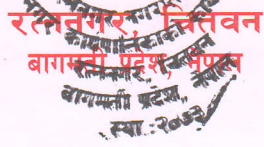 रत्ननगर, चितवन
बागमती प्रदेश, नेपाल
नगर कार्यपालिकाको
रत्ननगर, चितवन
बागमती प्रदेश, नेपाल
स्था : २०५३